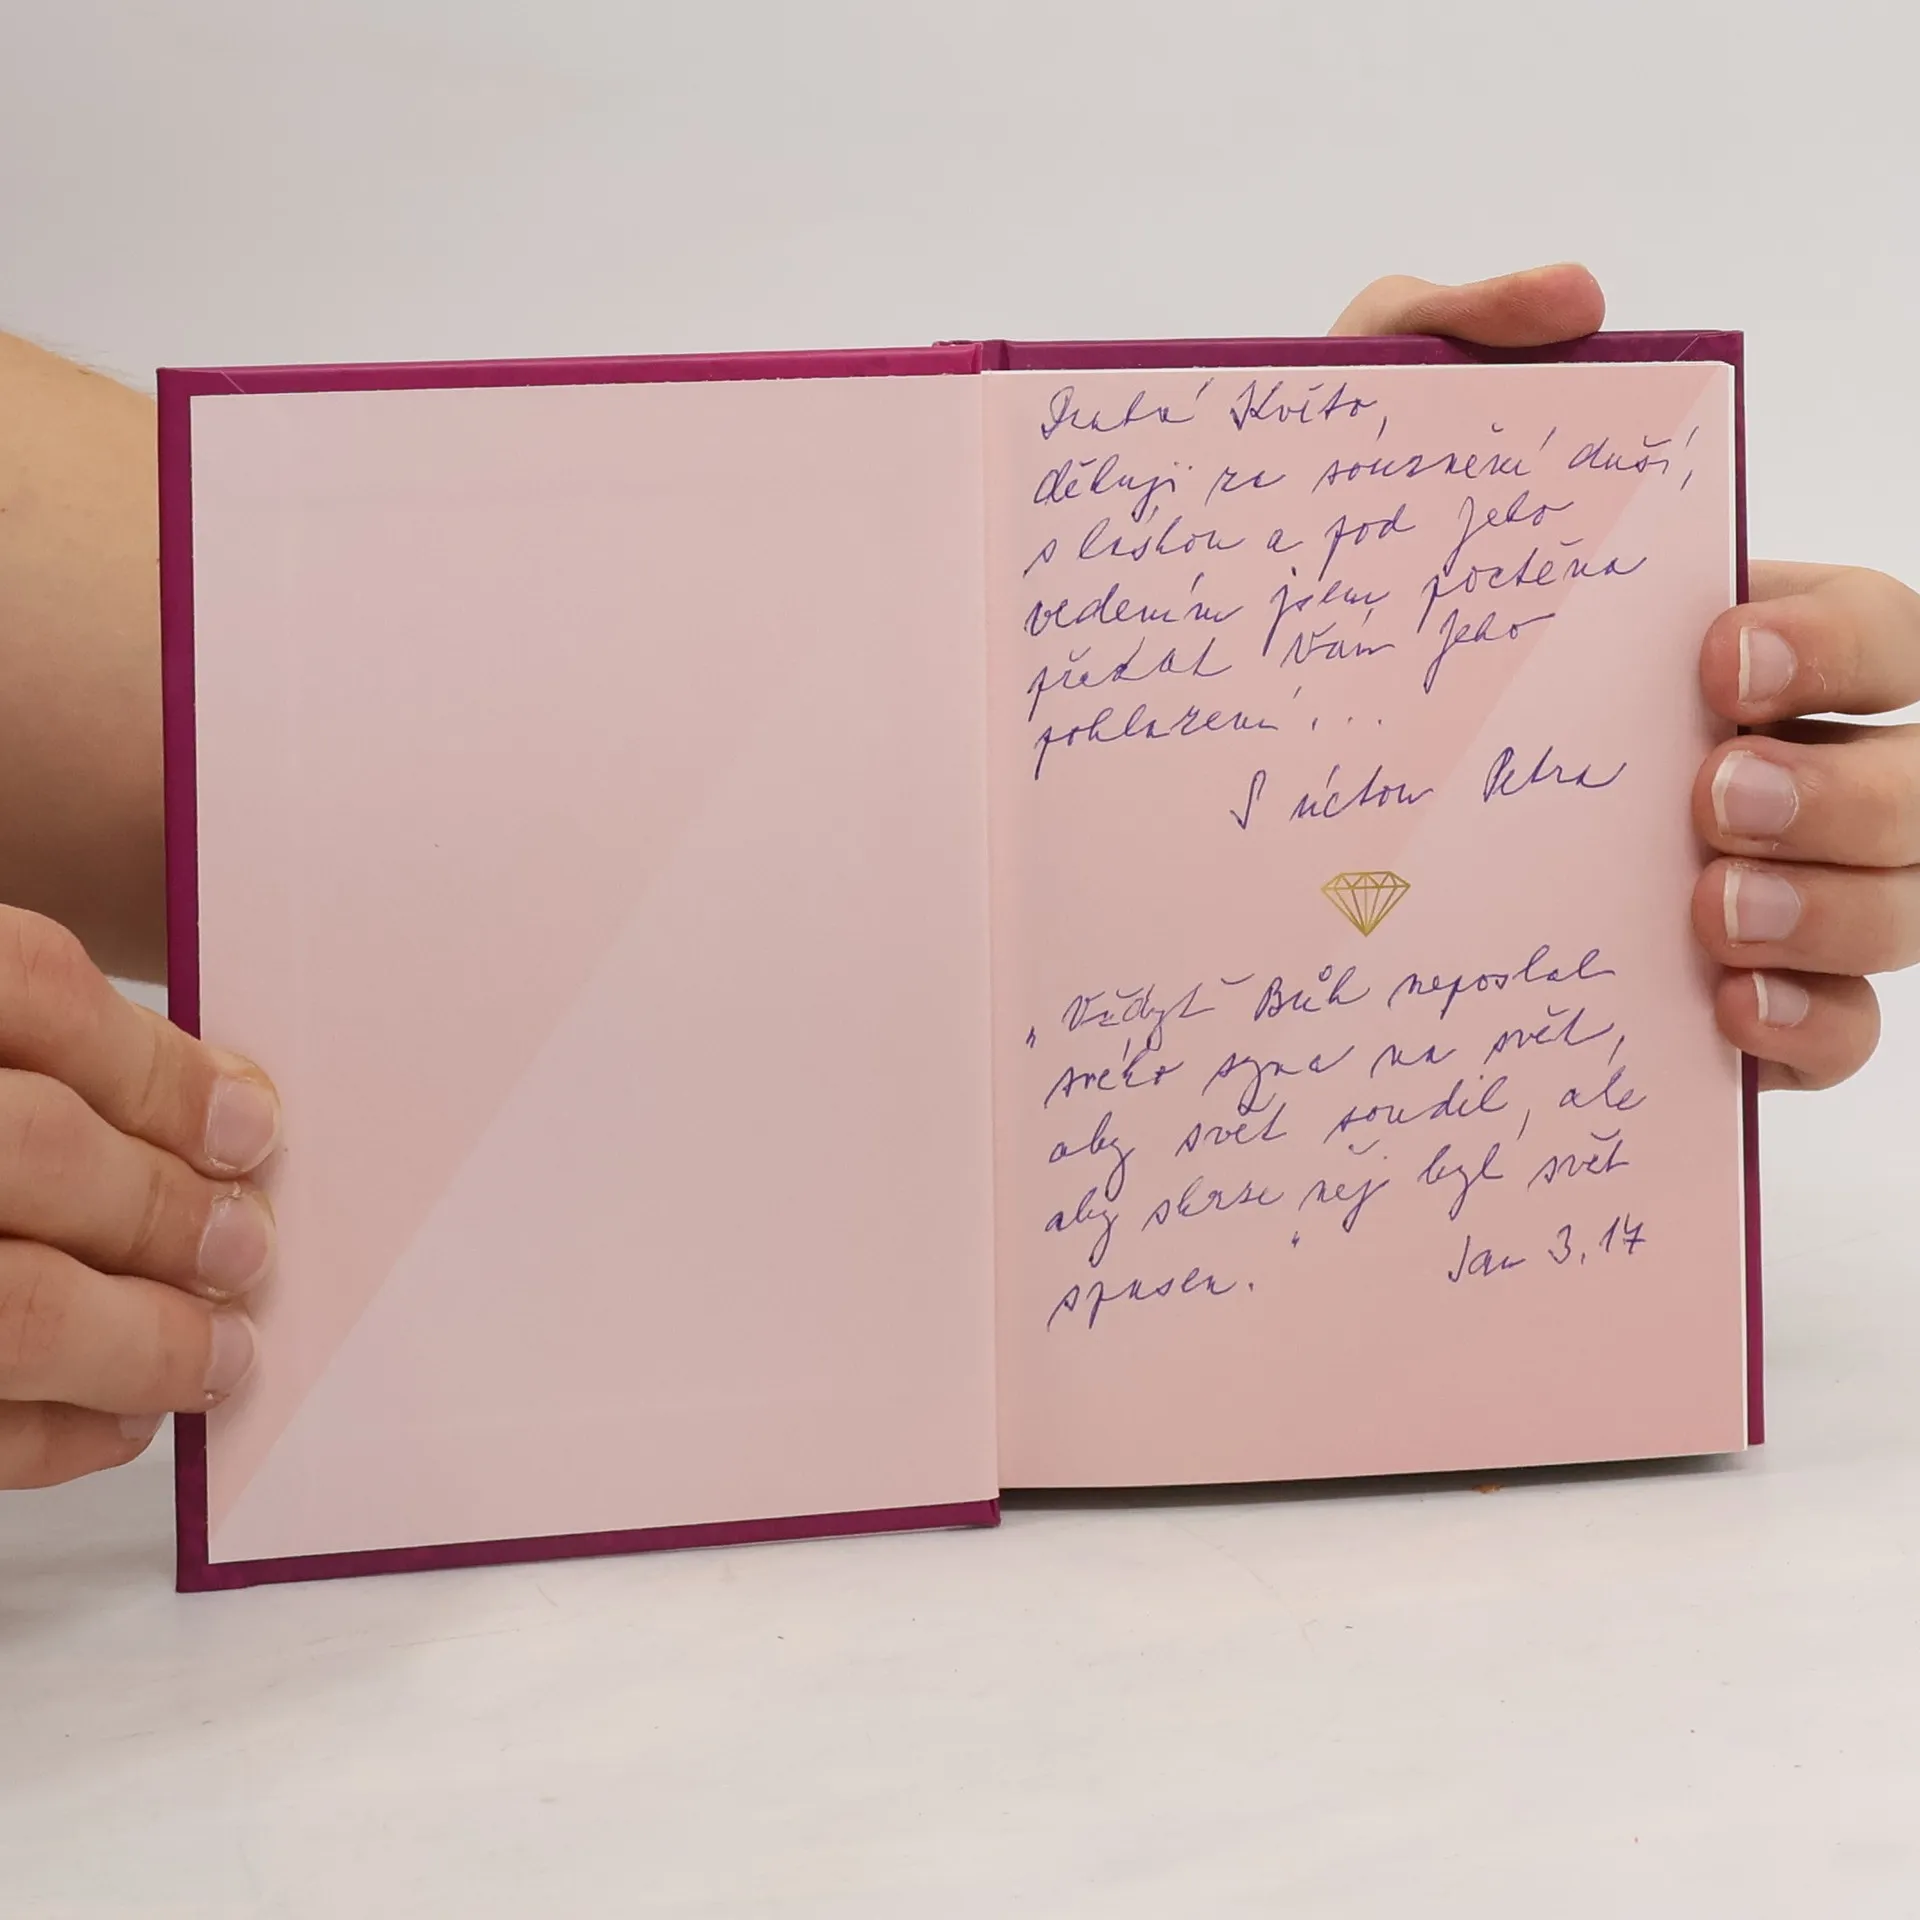 Drahá Květo,
děkuji za souznění duší,
s láskou a pod Jeho
vedením jsem poctěna
předat Vám Jeho
pohlazení...
S úctou Petra
„Vždyť Bůh neposlal
svého syna na svět,
aby svět soudil, ale
aby skrze něj byl svět
spasen.“ Jan 3,17